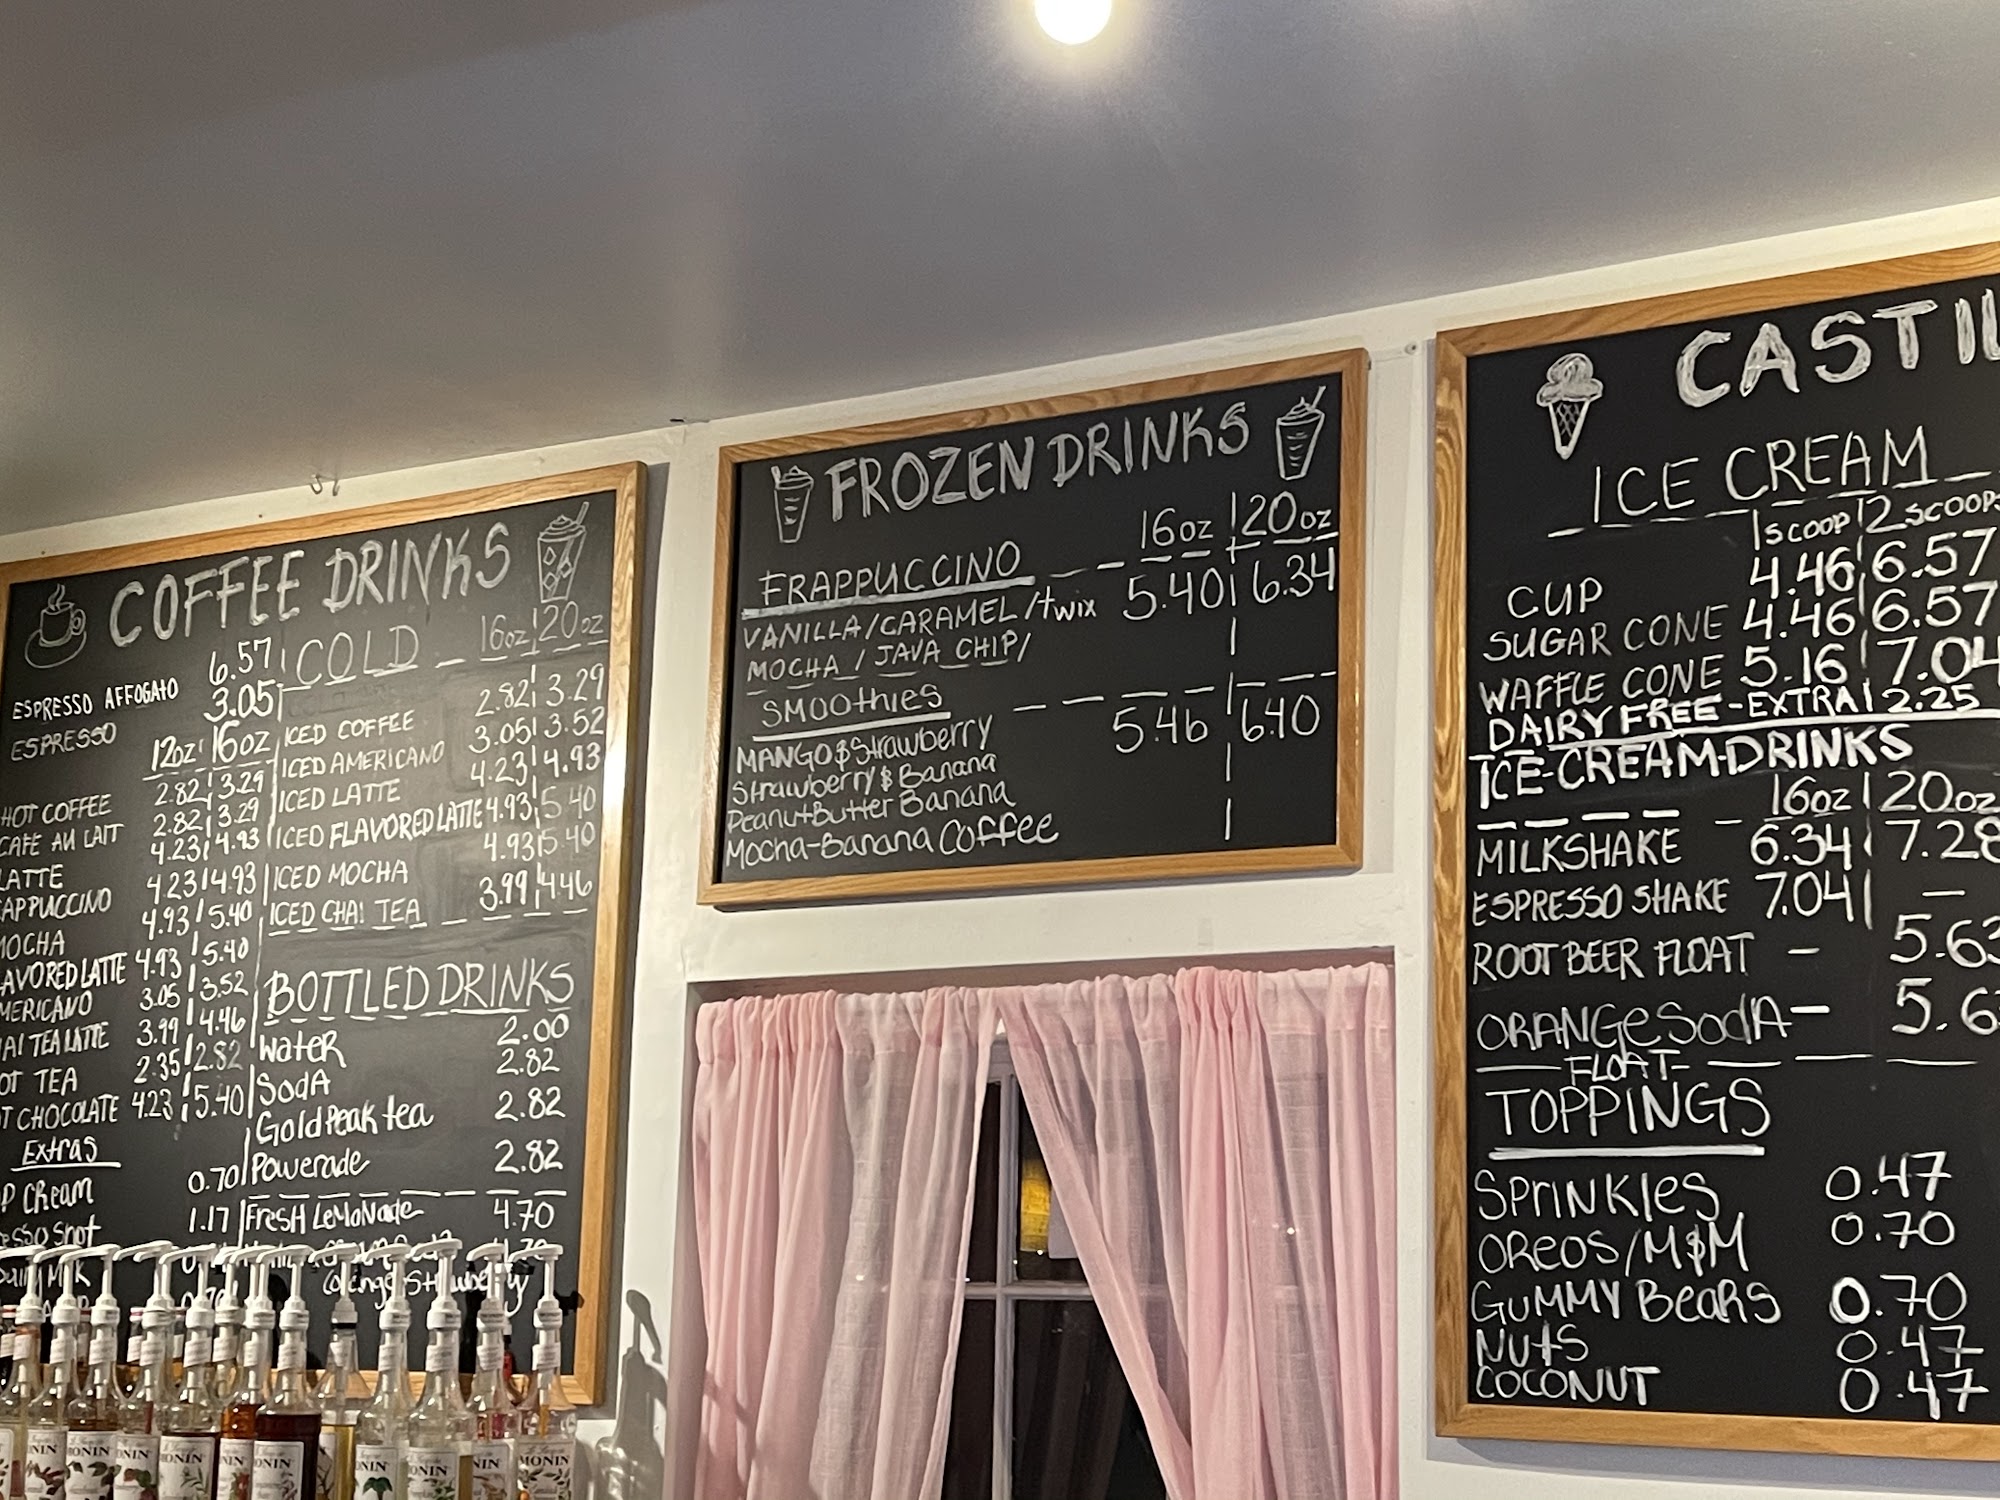 COFFEE DRINKS
ESPRESSO AFFOGATO 6.57
ESPRESSO 3.05
12oz 16oz
HOT COFFEE 2.82 3.29
CAFE AU LAIT 2.82 3.29
LATTE 4.23 4.93
APPUCCINO 4.23 4.93
MOCHA 4.93 5.40
AVORED LATTE 4.93 5.40
MERICANO 3.05 3.52
AI TEA LATTE 3.99 4.46
OT TEA 2.35 2.82
T CHOCOLATE 4.23 5.40
Extras
P CREAM 0.70
esso Shot 1.17
COLD 16oz 20oz
ICED COFFEE 2.82 3.29
ICED AMERICANO 3.05 3.52
ICED LATTE 4.23 4.93
ICED FLAVORED LATTE 4.93 5.40
ICED MOCHA 4.93 5.40
ICED CHAI TEA 3.99 4.46
BOTTLED DRINKS
Water 2.00
SodA 2.82
Gold Peak tea 2.82
Powerade 2.82
FresH LeMoNade 4.70
FROZEN DRINKS
16oz 20oz
FRAPPUCCINO 5.40 6.34
VANILLA/CARAMEL/twix
MOCHA / JAVA CHIP/
SMOOthies 5.46 6.40
MANGO $ Strawberry
Strawberry $ Banana
Peanut Butter Banana
Mocha-Banana Coffee
CASTIL
ICE CREAM
1 SCOOP 2 SCOOPS
CUP 4.46 6.57
SUGAR CONE 4.46 6.57
WAFFLE CONE 5.16 7.04
DAIRY FREE - EXTRA 2.25
ICE-CREAM-DRINKS
16oz 20oz
MILKSHAKE 6.34 7.28
ESPRESSO SHAKE 7.04 —
ROOT BEER FLOAT - 5.63
ORANGE SodA - 5.63
FLOAT-
TOPPINGS
SPrINKles 0.47
OReOS/M$M 0.70
GuMMY BeaRS 0.70
NUtS 0.47
COCONUT 0.47
MONIN
MONIN
MONIN
MONIN
MONIN